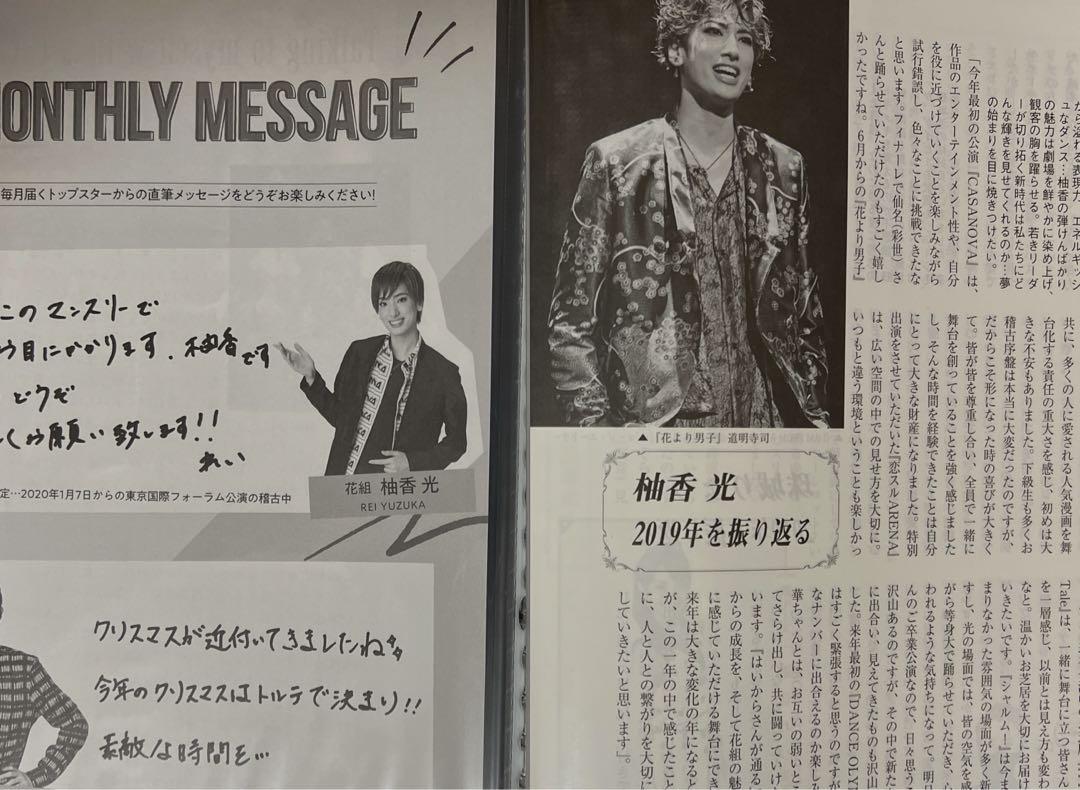 MONTHLY MESSAGE
毎月届くトップスターからの直筆メッセージをどうぞお楽しみください!
このマンスリーで
お目にかかります。柚香です
どうぞ
しくお願い致します!!
れい
花組 柚香 光
REI YUZUKA
定…2020年1月7日からの東京国際フォーラム公演の稽古中
クリスマスが近付いてきましたね
今年のクリスマスはトルテで決まり!!
素敵な時間を…
▲『花より男子』道明寺司
柚香 光
2019年を振り返る
から溢れる表現力、エネルギッシ
ュなダンス…柚香の弾けんばかり
の魅力は劇場を鮮やかに染め上げ、
観客の胸を躍らせる。若きリーダ
ーが切り拓く新時代は私たちにど
んな輝きを見せてくれるのか…夢
の始まりを目に焼きつけたい。
「今年最初の公演『CASANOVA』は、
作品のエンターテインメント性や、自分
を役に近づけていくことを楽しみながら
試行錯誤し、色々なことに挑戦できたな
と思います。フィナーレで仙名(彩世)さ
んと踊らせていただけたのもすごく嬉し
かったですね。6月からの『花より男子』
共に、多くの人に愛される人気漫画を舞
台化する責任の重大さを感じ、初めは大
きな不安もありました。下級生も多くお
稽古序盤は本当に大変だったのですが、
だからこそ形になった時の喜びが大きく
て。皆が皆を尊重し合い、全員で一緒に
舞台を創っていることを強く感じました
し、そんな時間を経験できたことは自分
にとって大きな財産になりました。特別
出演をさせていただいた『恋スルARENA』
は、広い空間の中での見せ方を大切に。
いつもと違う環境ということも楽しかっ
Tale』は、一緒に舞台に立つ皆さん
を一層感じ、以前とは見え方も変わ
なと。温かいお芝居を大切にお届け
いきたいです。『シャルム!』は今ま
まりなかった雰囲気の場面が多く新
すし、光の場面では、皆の空気を感
がら等身大で踊らせていただき、ら
われるような気持ちになって。明日
んのご卒業公演なので、日々思うこ
沢山あるのですが、その中で新たな
に出合い、見えてきたものも沢山
した。来年最初の『DANCE OLY
はすごく緊張すると思うのですが
なナンバーに出合えるのか楽しみ
華ちゃんとは、お互いの弱いとこ
てさらけ出し、共に闘っていけ
います。『はいからさんが通る』
からの成長を、そして花組の魅
に感じていただける舞台にでき
来年は大きな変化の年になると
が、この一年の中で感じたこと
に、人と人との繋がりを大切に
していきたいと思います」。